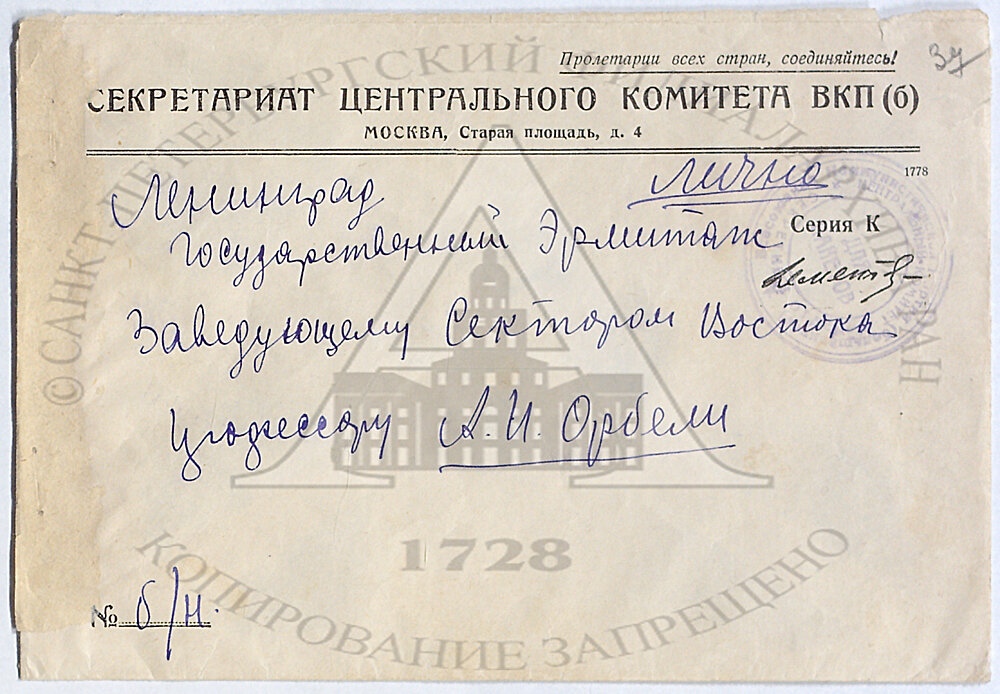 Пролетарии всех стран, соединяйтесь!
37
СЕКРЕТАРИАТ ЦЕНТРАЛЬНОГО КОМИТЕТА ВКП(б)
МОСКВА, Старая площадь, д. 4
1778
Лично
Ленинград
Серия К
Государственный Эрмитаж
Заведующему Сектором Востока
профессору А. И. Орбели
№ б/н.
© САНКТ-ПЕТЕРБУРГСКИЙ ФИЛИАЛ АРХИВА РАН
1728
КОПИРОВАНИЕ ЗАПРЕЩЕНО